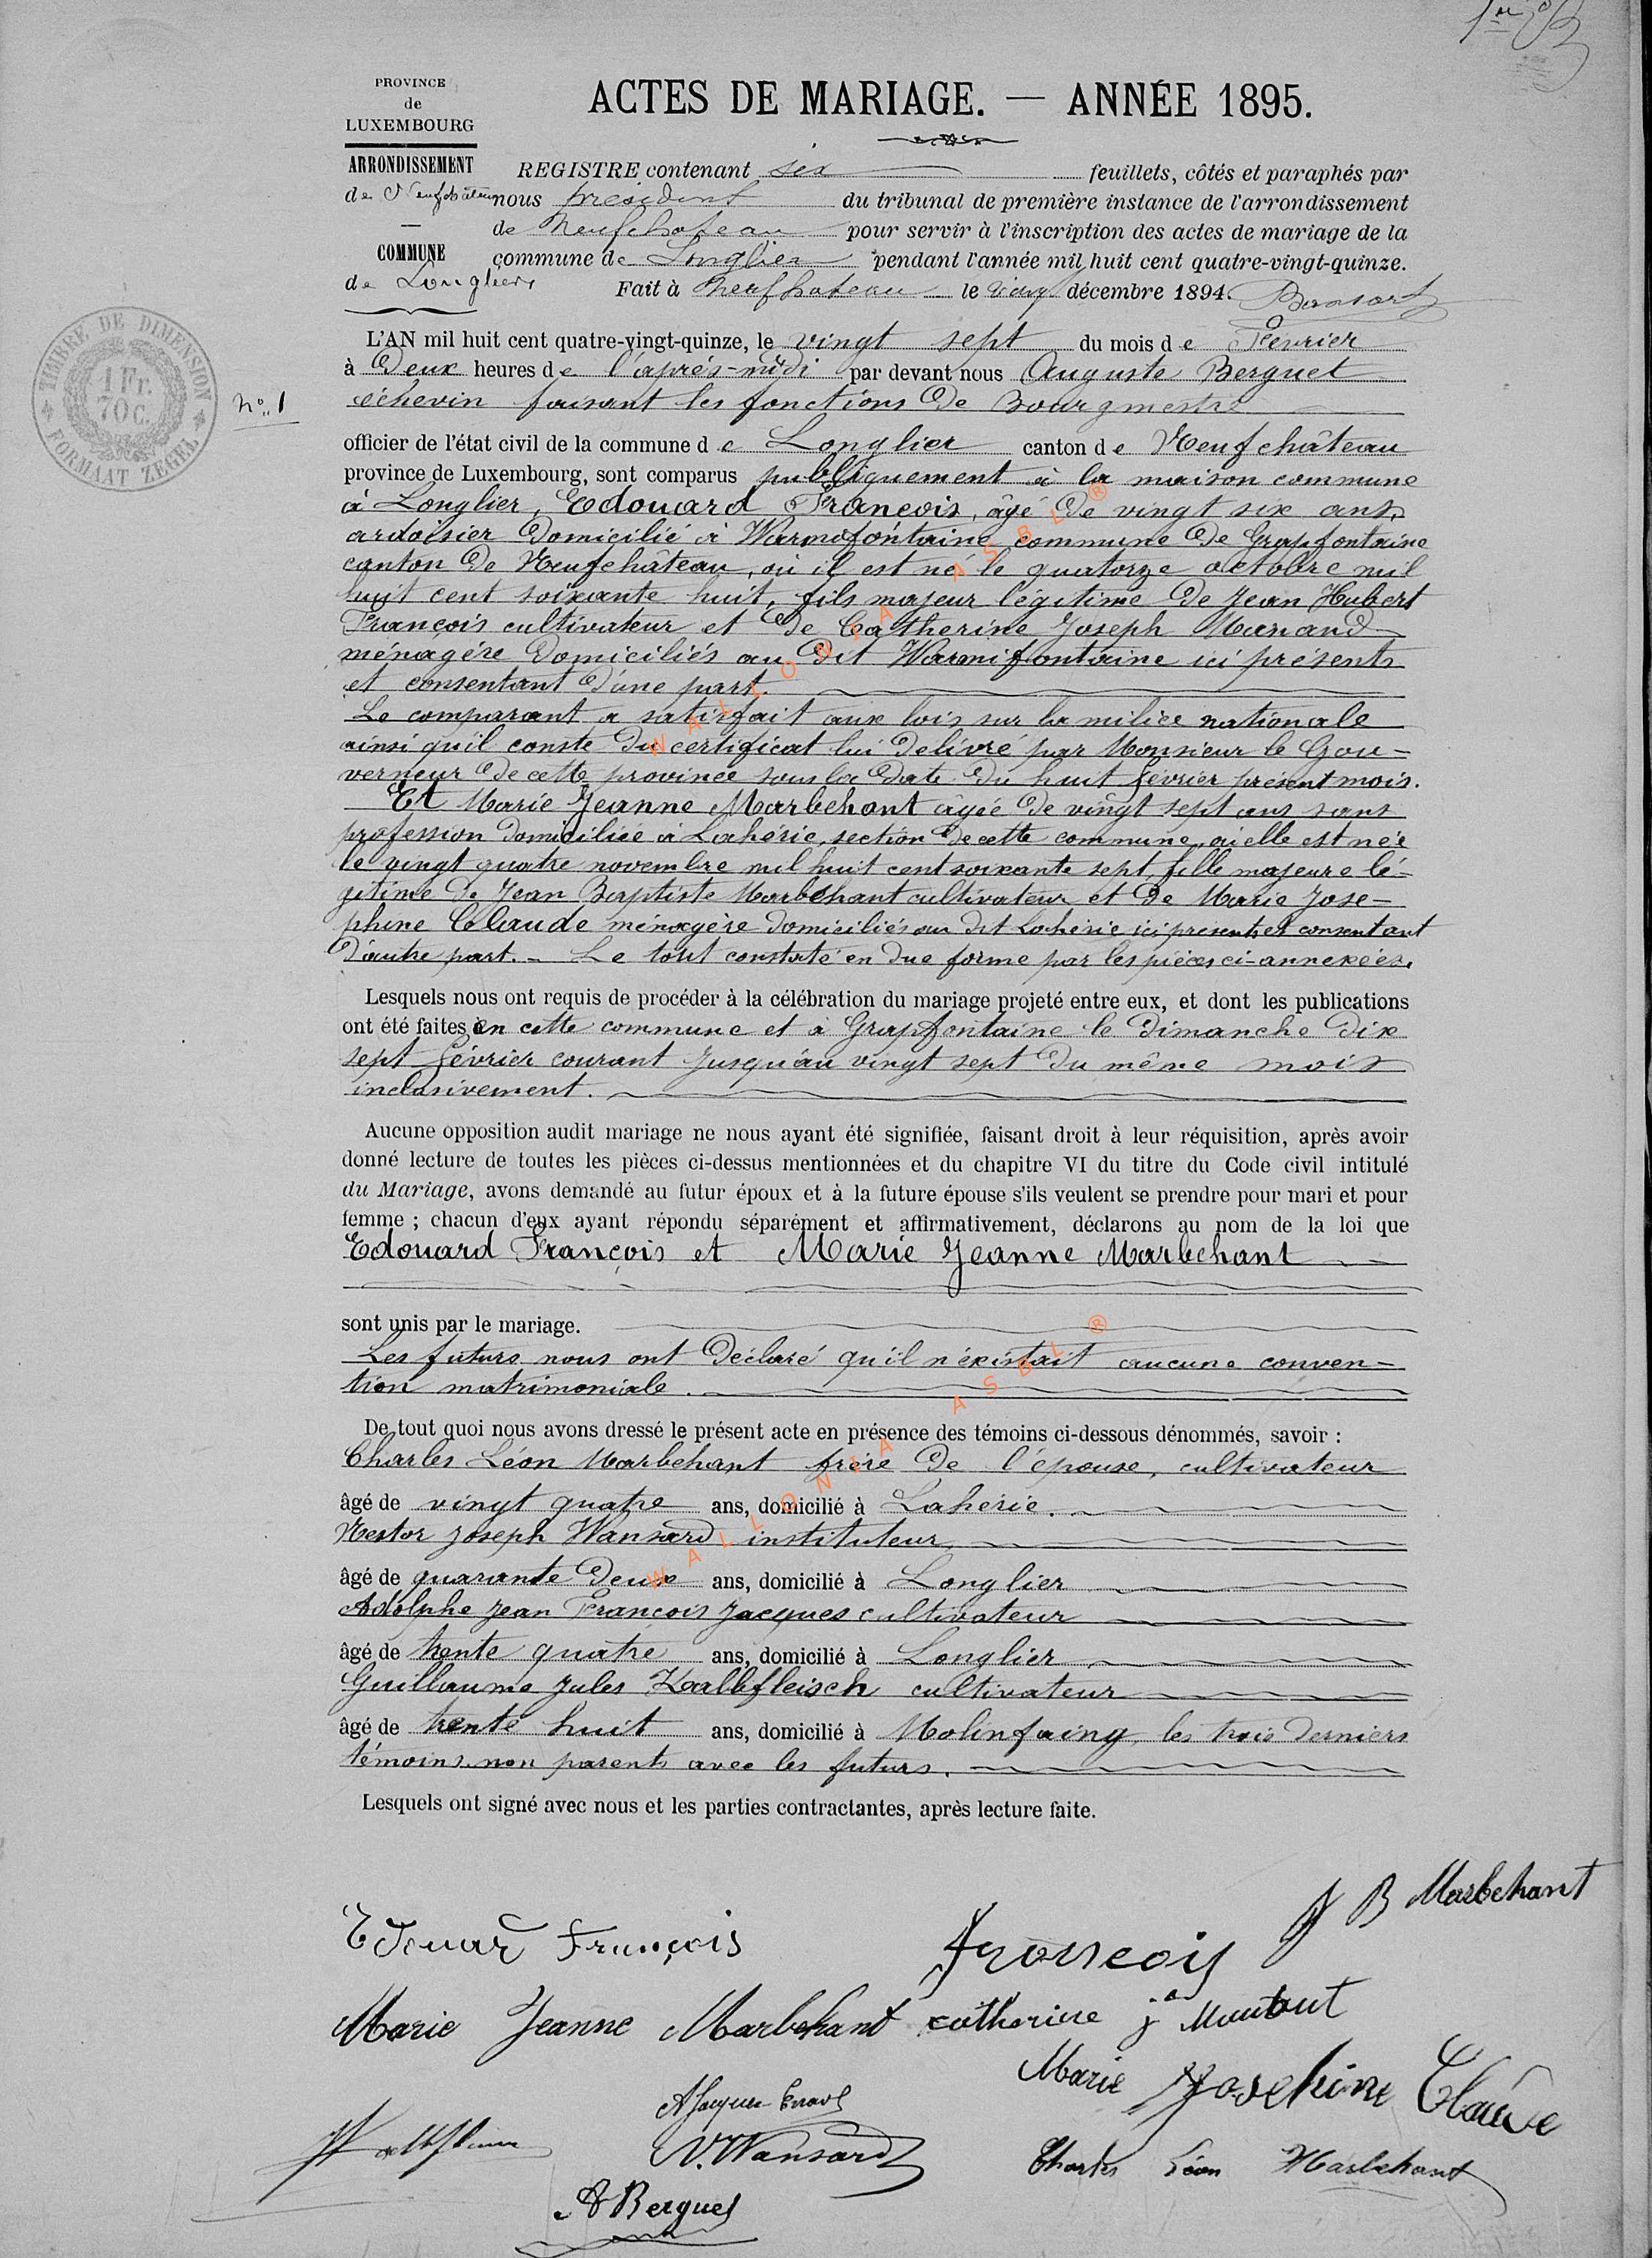 PROVINCE
de
LUXEMBOURG
ARRONDISSEMENT
de Neufchâteau
COMMUNE
de Longlier
ACTES DE MARIAGE. — ANNÉE 1895.
REGISTRE contenant six feuillets, côtés et paraphés par
nous président du tribunal de première instance de l'arrondissement
de Neufchateau pour servir à l'inscription des actes de mariage de la
commune de Longlier pendant l'année mil huit cent quatre-vingt-quinze.
Fait à Neufchateau le vingt décembre 1894.
TIMBRE DE DIMENSION
1 Fr.
70 C.
FORMAAT ZEGEL
no 1
L'AN mil huit cent quatre-vingt-quinze, le vingt sept du mois de Février
à Deux heures de l'après-midi par devant nous Auguste Berguet
échevin faisant les fonctions de Bourgmestre
officier de l'état civil de la commune de Longlier canton de Neufchâteau
province de Luxembourg, sont comparus publiquement à la maison commune
à Longlier, Edouard François, âgé de vingt six ans,
ardoisier domicilié à Warmifontaine commune de Grapfontaine
canton de Neufchâteau, où il est né le quatorze octobre mil
huit cent soixante huit, fils majeur légitime de Jean Hubert
François cultivateur et de Catherine Joseph Manand
ménagère domiciliés au dit Warmifontaine ici présents
et consentant d'une part.
Le comparant a satisfait aux lois sur la milice nationale
ainsi qu'il conste du certificat lui delivré par Monsieur le Gou-
verneur de cette province sous la date du huit février présent mois.
Et Marie Jeanne Marbehant âgée de vingt sept ans sans
profession domiciliée à Lahérie, section de cette commune, où elle est née
le vingt quatre novembre mil huit cent soixante sept, fille majeure lé-
gitime de Jean Baptiste Marbehant cultivateur et de Marie Jose-
phine Claude ménagère domiciliés au dit Lahérie ici présents et consentant
d'autre part. - Le tout constaté en due forme par les pièces ci-annexées.
Lesquels nous ont requis de procéder à la célébration du mariage projeté entre eux, et dont les publications
ont été faites en cette commune et à Grapfontaine le dimanche dix
sept février courant jusqu'au vingt sept du même mois
inclusivement.
Aucune opposition audit mariage ne nous ayant été signifiée, faisant droit à leur réquisition, après avoir
donné lecture de toutes les pièces ci-dessus mentionnées et du chapitre VI du titre du Code civil intitulé
du Mariage, avons demandé au futur époux et à la future épouse s'ils veulent se prendre pour mari et pour
femme ; chacun d'eux ayant répondu séparément et affirmativement, déclarons au nom de la loi que
Edouard François et Marie Jeanne Marbehant
sont unis par le mariage.
Les futurs nous ont déclaré qu'il n'existait aucune conven-
tion matrimoniale.
De tout quoi nous avons dressé le présent acte en présence des témoins ci-dessous dénommés, savoir :
Charles Léon Marbehant frère de l'épouse, cultivateur
âgé de vingt quatre ans, domicilié à Lahérie.
Nestor Joseph Wansard instituteur,
âgé de quarante deux ans, domicilié à Longlier
Adolphe Jean François Jacques cultivateur
âgé de trente quatre ans, domicilié à Longlier
Guillaume Jules Kalbfleisch cultivateur
âgé de trente huit ans, domicilié à Molinfaing, les trois derniers
témoins non parents avec les futurs.
Lesquels ont signé avec nous et les parties contractantes, après lecture faite.
J B Marbehant
Edouard François
François
Marie Jeanne Marbehant
catherine
Marie Josephine Claude
N. Wansard
Charles Léon Marbehant
A Berguet
WALLONIA ASBL ®
WALLONIA ASBL ®